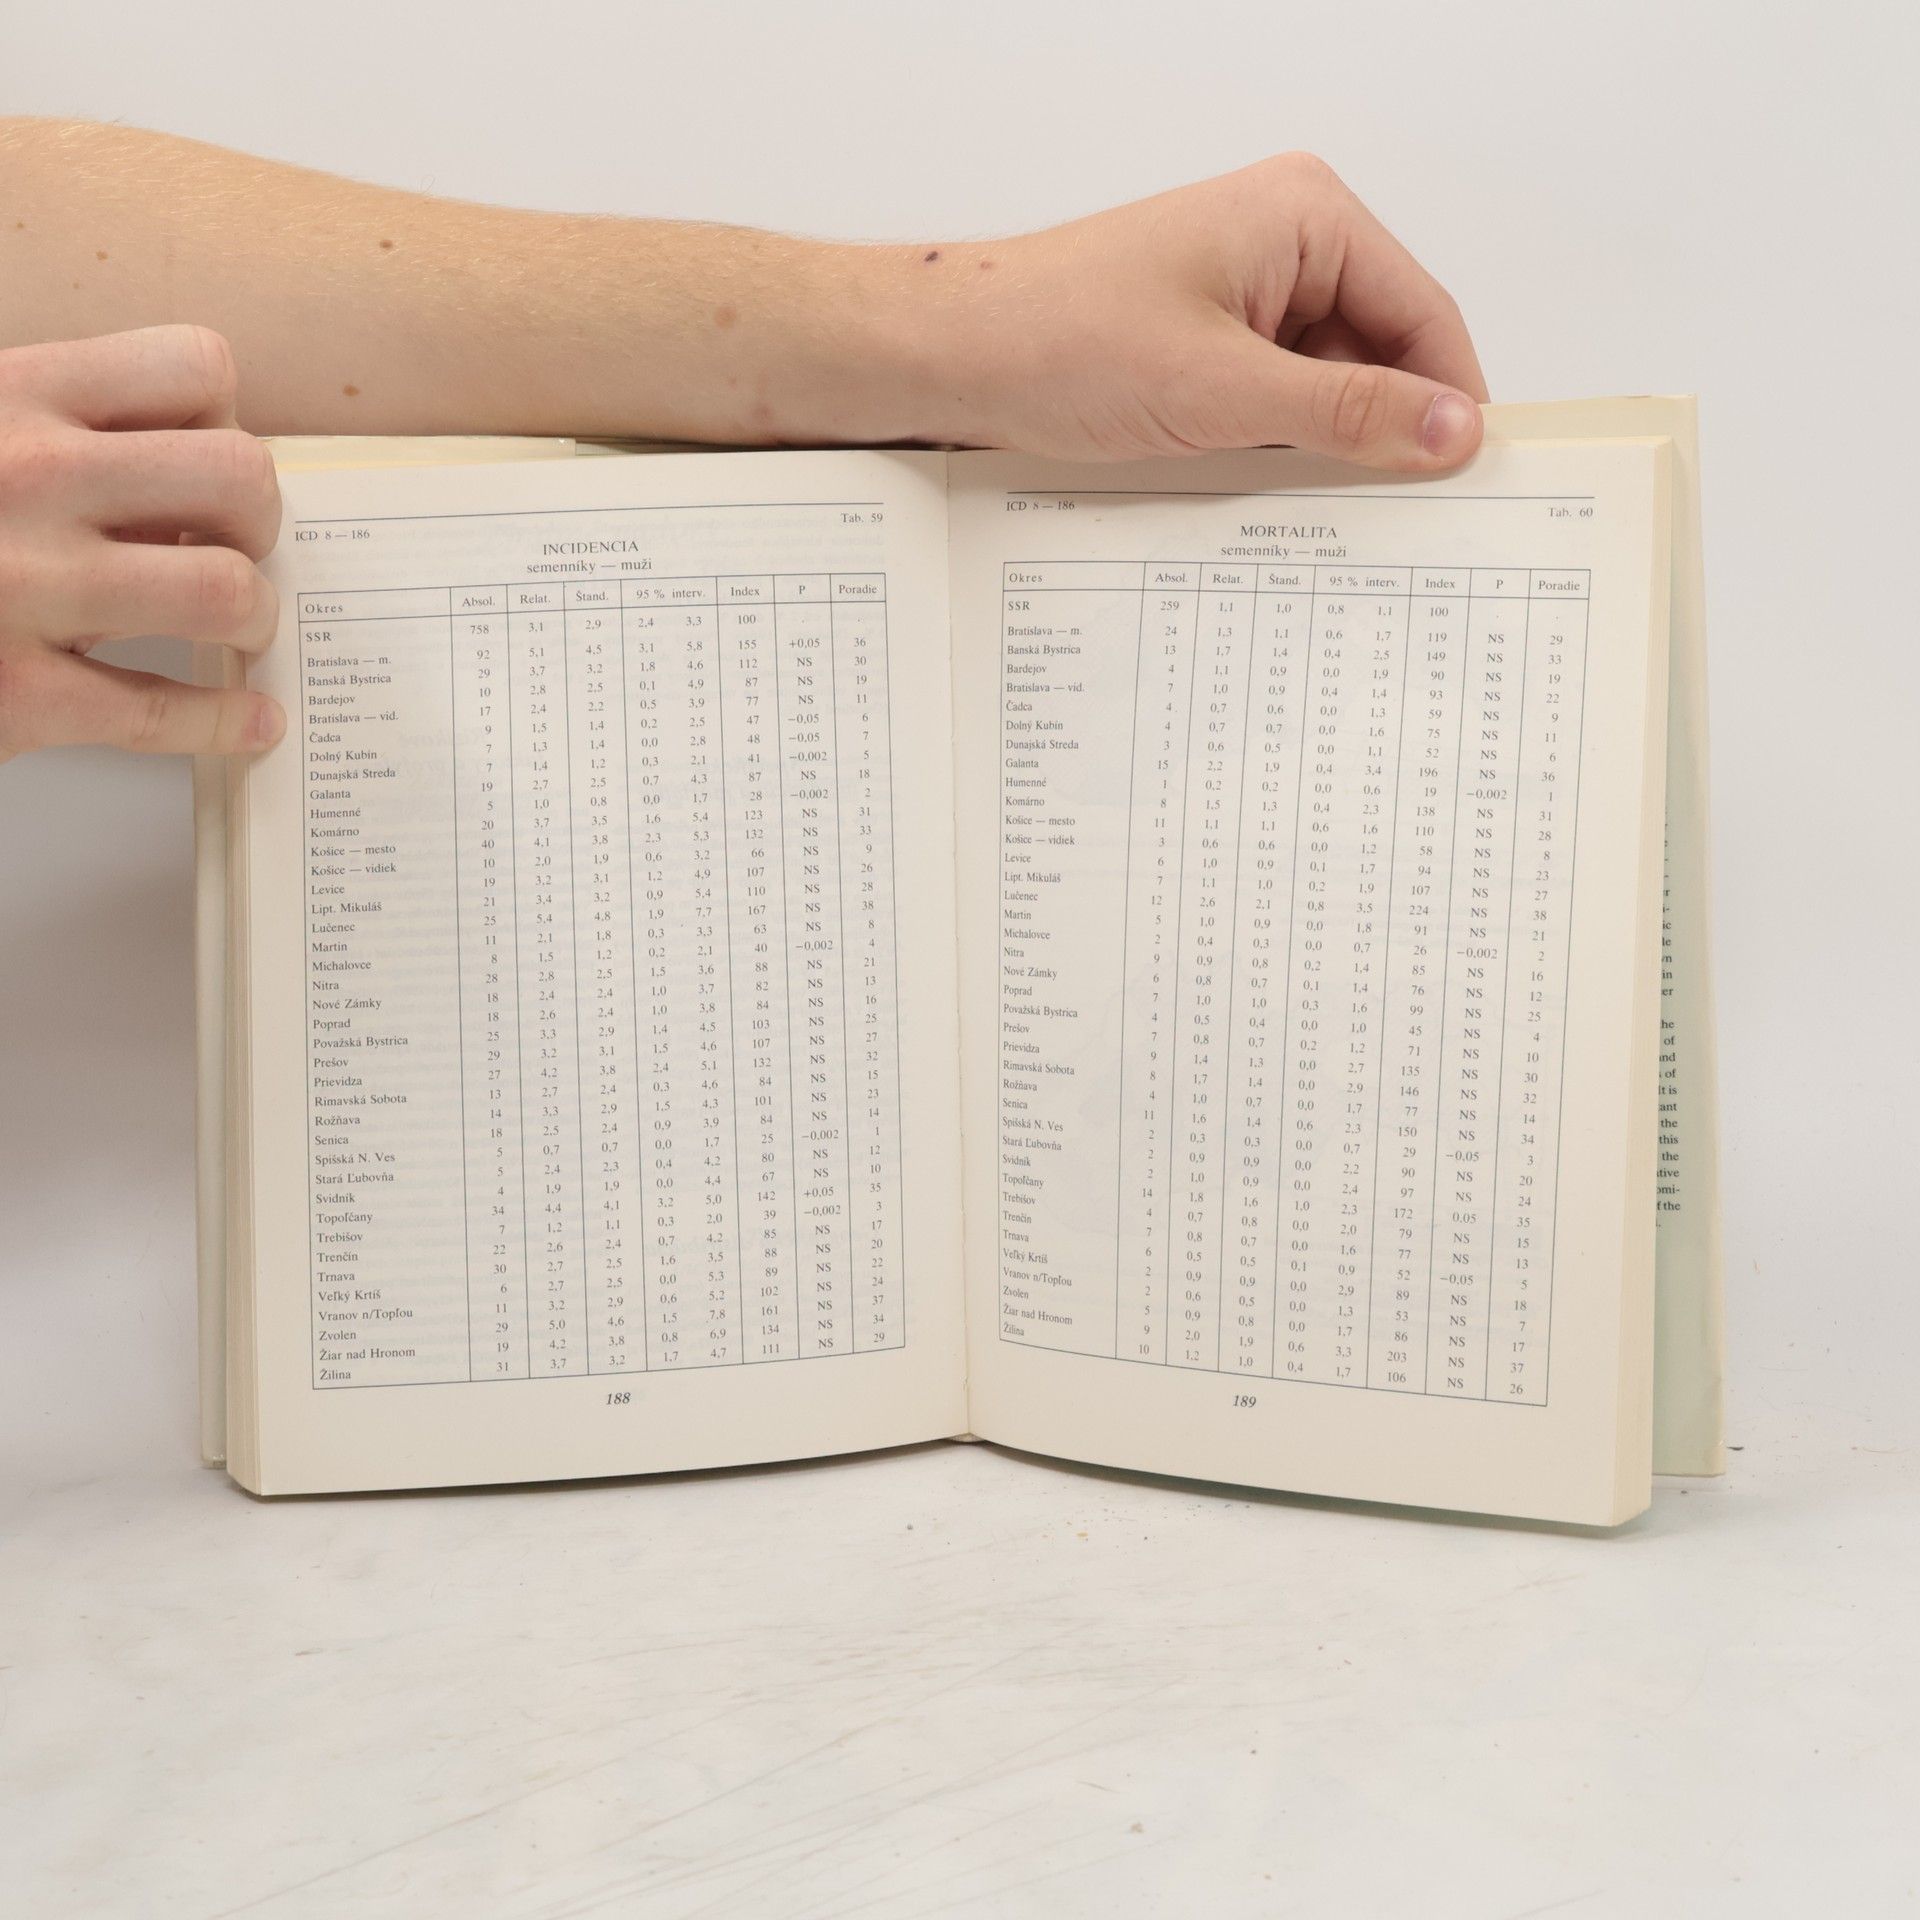 ICD 8 — 186 Tab. 59
INCIDENCIA
semenníky — muži
Okres Absol. Relat. Štand. 95 % interv. Index P Poradie
SSR 758 3,1 2,9 2,4 3,3 100 . .
Bratislava — m. 92 5,1 4,5 3,1 5,8 155 +0,05 36
Banská Bystrica 29 3,7 3,2 1,8 4,6 112 NS 30
Bardejov 10 2,8 2,5 0,1 4,9 87 NS 19
Bratislava — vid. 17 2,4 2,2 0,5 3,9 77 NS 11
Čadca 9 1,5 1,4 0,2 2,5 47 −0,05 6
Dolný Kubín 7 1,3 1,4 0,0 2,8 48 −0,05 7
Dunajská Streda 7 1,4 1,2 0,3 2,1 41 −0,002 5
Galanta 19 2,7 2,5 0,7 4,3 87 NS 18
Humenné 5 1,0 0,8 0,0 1,7 28 −0,002 2
Komárno 20 3,7 3,5 1,6 5,4 123 NS 31
Košice — mesto 40 4,1 3,8 2,3 5,3 132 NS 33
Košice — vidiek 10 2,0 1,9 0,6 3,2 66 NS 9
Levice 19 3,2 3,1 1,2 4,9 107 NS 26
Lipt. Mikuláš 21 3,4 3,2 0,9 5,4 110 NS 28
Lučenec 25 5,4 4,8 1,9 7,7 167 NS 38
Martin 11 2,1 1,8 0,3 3,3 63 NS 8
Michalovce 8 1,5 1,2 0,2 2,1 40 −0,002 4
Nitra 28 2,8 2,5 1,5 3,6 88 NS 21
Nové Zámky 18 2,4 2,4 1,0 3,7 82 NS 13
Poprad 18 2,6 2,4 1,0 3,8 84 NS 16
Považská Bystrica 25 3,3 2,9 1,4 4,5 103 NS 25
Prešov 29 3,2 3,1 1,5 4,6 107 NS 27
Prievidza 27 4,2 3,8 2,4 5,1 132 NS 32
Rimavská Sobota 13 2,7 2,4 0,3 4,6 84 NS 15
Rožňava 14 3,3 2,9 1,5 4,3 101 NS 23
Senica 18 2,5 2,4 0,9 3,9 84 NS 14
Spišská N. Ves 5 0,7 0,7 0,0 1,7 25 −0,002 1
Stará Ľubovňa 5 2,4 2,3 0,4 4,2 80 NS 12
Svidník 4 1,9 1,9 0,0 4,4 67 NS 10
Topoľčany 34 4,4 4,1 3,2 5,0 142 +0,05 35
Trebišov 7 1,2 1,1 0,3 2,0 39 −0,002 3
Trenčín 22 2,6 2,4 0,7 4,2 85 NS 17
Trnava 30 2,7 2,5 1,6 3,5 88 NS 20
Veľký Krtíš 6 2,7 2,5 0,0 5,3 89 NS 22
Vranov n/Topľou 11 3,2 2,9 0,6 5,2 102 NS 24
Zvolen 29 5,0 4,6 1,5 7,8 161 NS 37
Žiar nad Hronom 19 4,2 3,8 0,8 6,9 134 NS 34
Žilina 31 3,7 3,2 1,7 4,7 111 NS 29
188
ICD 8 — 186 Tab. 60
MORTALITA
semenníky — muži
Okres Absol. Relat. Štand. 95 % interv. Index P Poradie
SSR 259 1,1 1,0 0,8 1,1 100 . .
Bratislava — m. 24 1,3 1,1 0,6 1,7 119 NS 29
Banská Bystrica 13 1,7 1,4 0,4 2,5 149 NS 33
Bardejov 4 1,1 0,9 0,0 1,9 90 NS 19
Bratislava — vid. 7 1,0 0,9 0,4 1,4 93 NS 22
Čadca 4 0,7 0,6 0,0 1,3 59 NS 9
Dolný Kubín 4 0,7 0,7 0,0 1,6 75 NS 11
Dunajská Streda 3 0,6 0,5 0,0 1,1 52 NS 6
Galanta 15 2,2 1,9 0,4 3,4 196 NS 36
Humenné 1 0,2 0,2 0,0 0,6 19 −0,002 1
Komárno 8 1,5 1,3 0,4 2,3 138 NS 31
Košice — mesto 11 1,1 1,1 0,6 1,6 110 NS 28
Košice — vidiek 3 0,6 0,6 0,0 1,2 58 NS 8
Levice 6 1,0 0,9 0,1 1,7 94 NS 23
Lipt. Mikuláš 7 1,1 1,0 0,2 1,9 107 NS 27
Lučenec 12 2,6 2,1 0,8 3,5 224 NS 38
Martin 5 1,0 0,9 0,0 1,8 91 NS 21
Michalovce 2 0,4 0,3 0,0 0,7 26 −0,002 2
Nitra 9 0,9 0,8 0,2 1,4 85 NS 16
Nové Zámky 6 0,8 0,7 0,1 1,4 76 NS 12
Poprad 7 1,0 1,0 0,3 1,6 99 NS 25
Považská Bystrica 4 0,5 0,4 0,0 1,0 45 NS 4
Prešov 7 0,8 0,7 0,2 1,2 71 NS 10
Prievidza 9 1,4 1,3 0,0 2,7 135 NS 30
Rimavská Sobota 8 1,7 1,4 0,0 2,9 146 NS 32
Rožňava 4 1,0 0,7 0,0 1,7 77 NS 14
Senica 11 1,6 1,4 0,6 2,3 150 NS 34
Spišská N. Ves 2 0,3 0,3 0,0 0,7 29 −0,05 3
Stará Ľubovňa 2 0,9 0,9 0,0 2,2 90 NS 20
Svidník 2 1,0 0,9 0,0 2,4 97 NS 24
Topoľčany 14 1,8 1,6 1,0 2,3 172 0.05 35
Trebišov 4 0,7 0,8 0,0 2,0 79 NS 15
Trenčín 7 0,8 0,7 0,0 1,6 77 NS 13
Trnava 6 0,5 0,5 0,1 0,9 52 −0,05 5
Veľký Krtíš 2 0,9 0,9 0,0 2,9 89 NS 18
Vranov n/Topľou 2 0,6 0,5 0,0 1,3 53 NS 7
Zvolen 5 0,9 0,8 0,0 1,7 86 NS 17
Žiar nad Hronom 9 2,0 1,9 0,6 3,3 203 NS 37
Žilina 10 1,2 1,0 0,4 1,7 106 NS 26
189